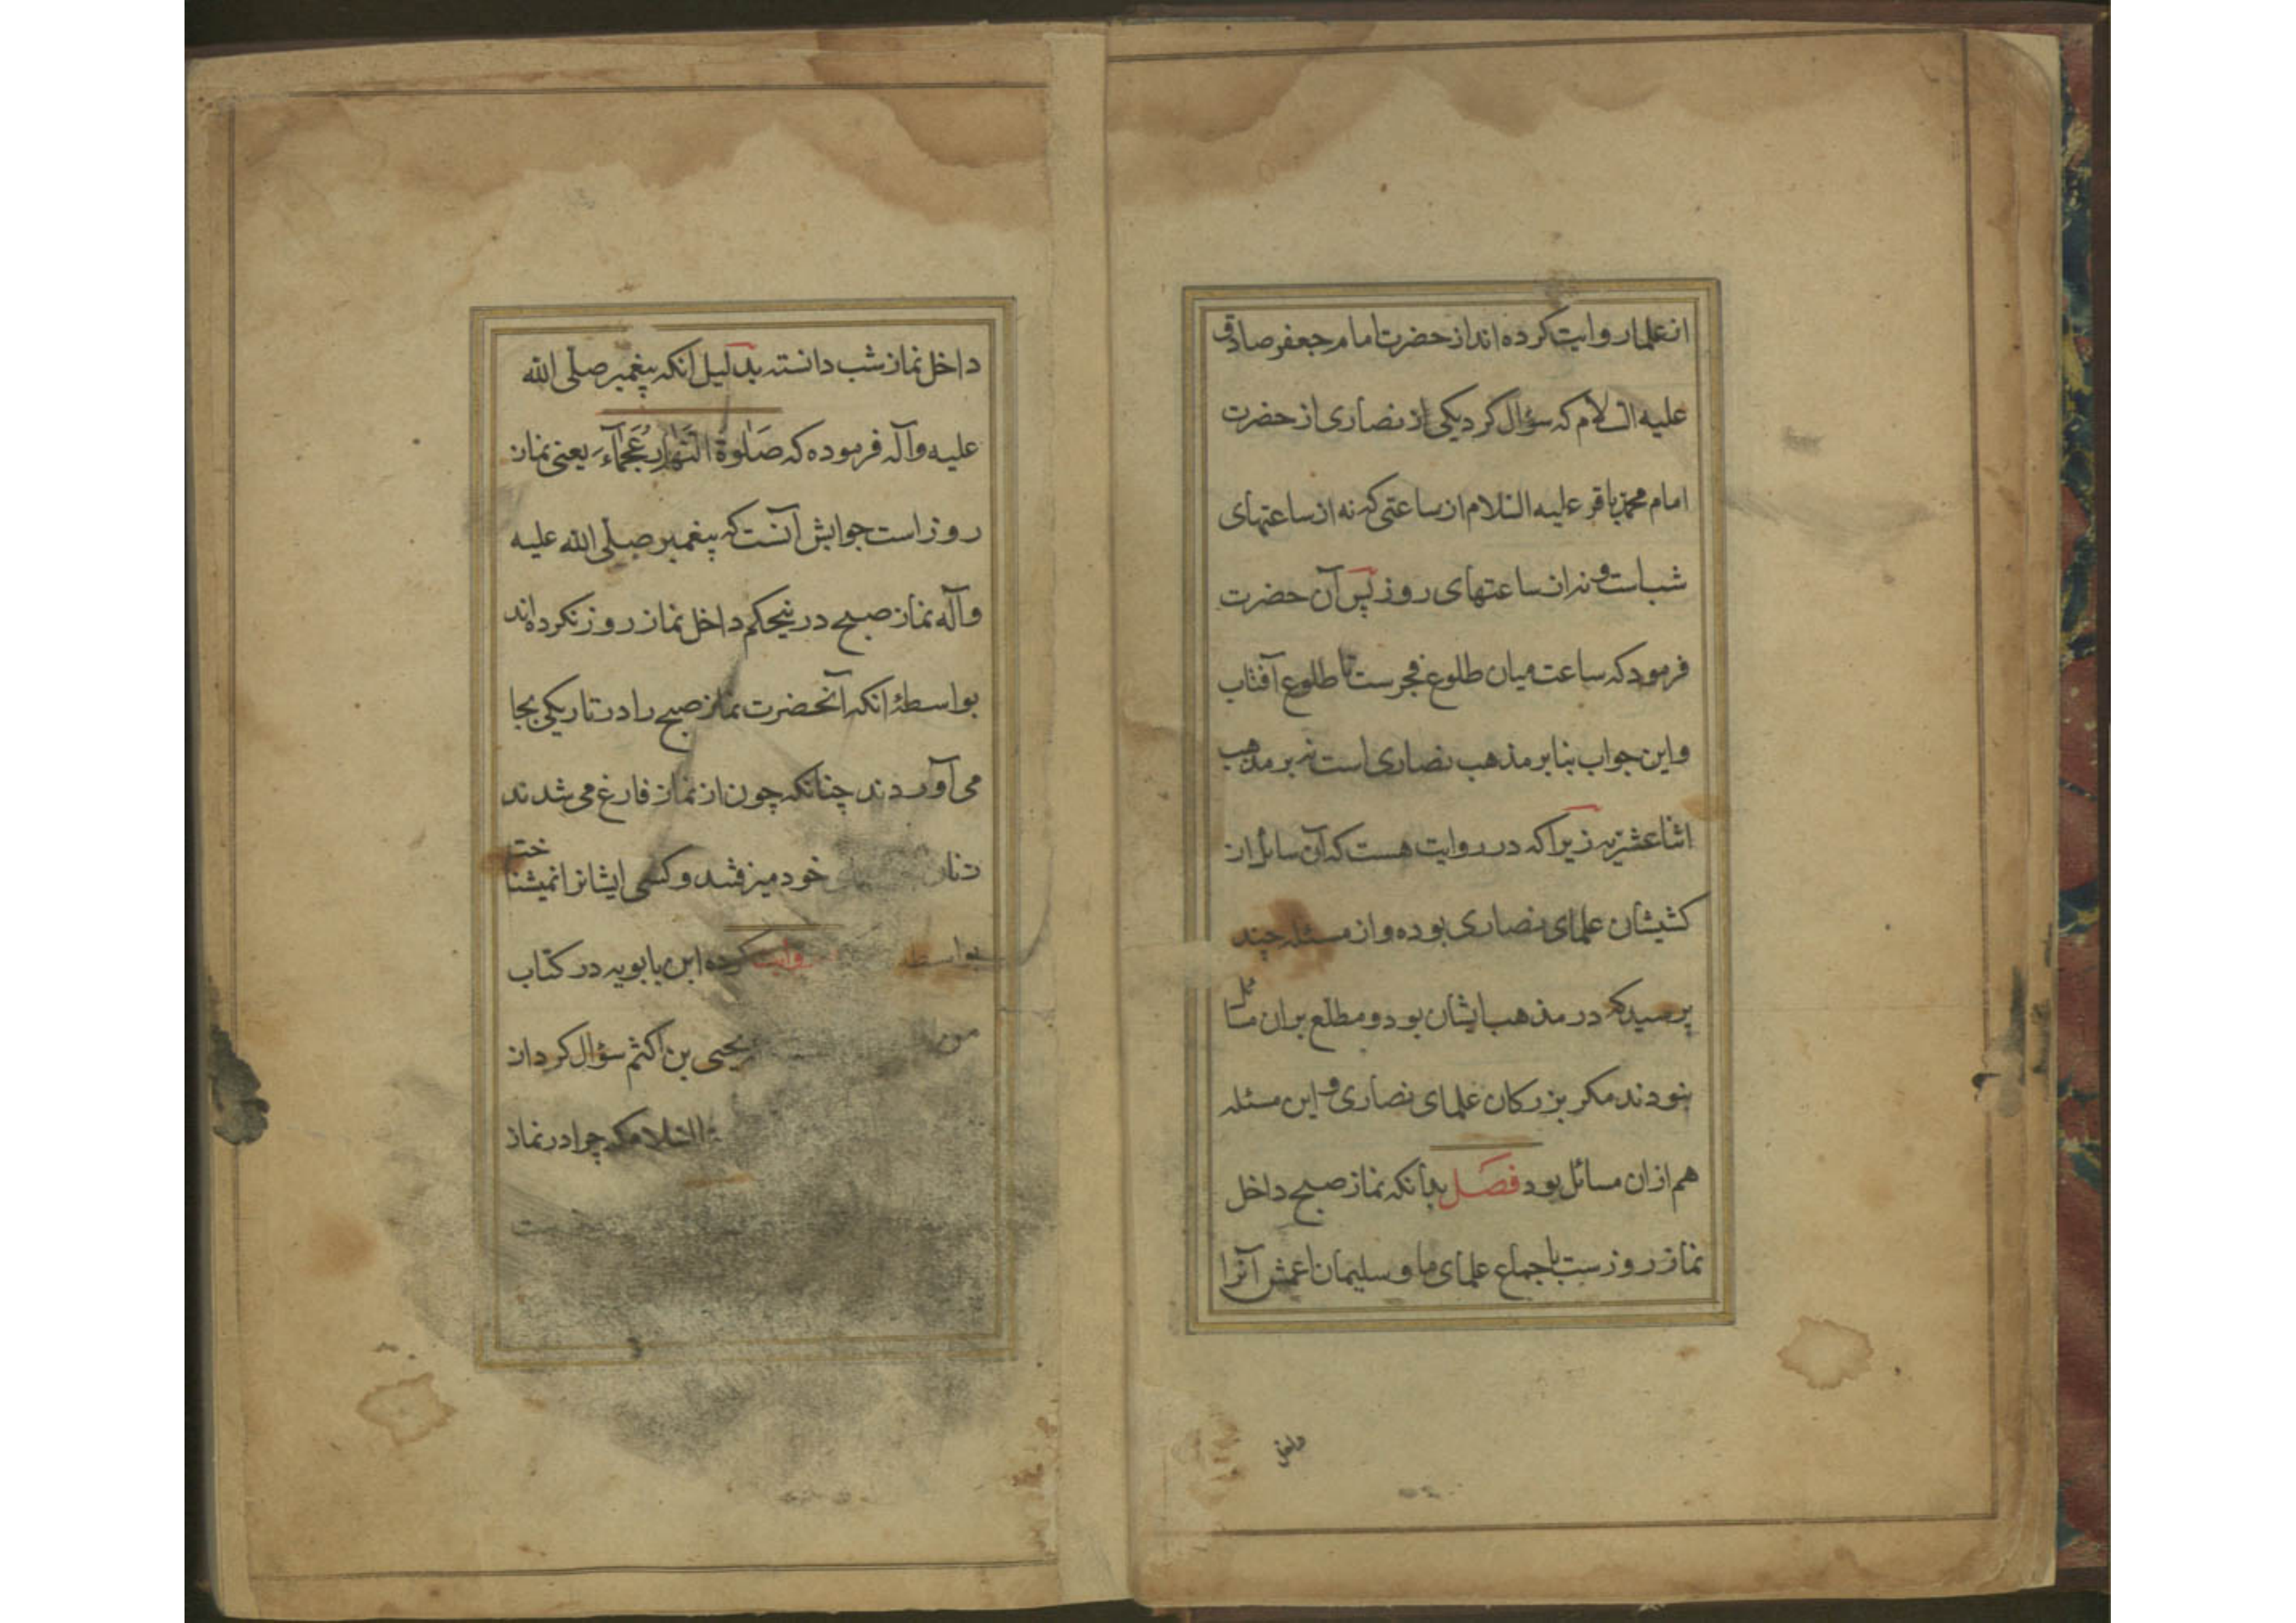 از علما روایت کرده اند از حضرت امام جعفر صادق
علیه السلام که سؤال کرد یکی از نصاری از حضرت
امام محمد باقر علیه السلام از ساعتی که نه از ساعتهای
شب است و نه از ساعتهای روز پس آن حضرت
فرمود که ساعت میان طلوع فجرست تا طلوع آفتاب
و این جواب بنا بر مذهب نصاری است نه بر مذهب
اثنا عشریه زیرا که در روایت هست که آن سائل از
کشیشان علمای نصاری بوده و از مسئله چند
پرسید که در مذهب ایشان بود و مطلع بر آن مسائل
نبودند مکر بزرکان علمای نصاری و این مسئله
هم از ان مسائل بود فصل بدانکه نماز صبح داخل
نماز روز ست باجماع علمای ما و سلیمان اعمش آنرا
داخل
داخل نماز شب دانسته بدلیل انکه پیغمبر صلّی الله
علیه وآله فرموده که صَلٰوةُ النَّهٰارِ عَجْمٰآءُ یعنی نماز
روز است جوابش آنست که پیغمبر صلّی الله علیه
وآله نماز صبح در نیحکم داخل نماز روز نکرده اند
بواسطهٔ انکه آنحضرت نماز صبح را در تاریکی بجا
می آوردند چنانکه چون از نماز فارغ می شدند
خود میرفتند و کسی ایشانرا نمیشناخت
بواسطه روایت کرده ابن بابویه در کتاب
من یحیی بن اکثم سؤال کرد از
السلام که چرا در نماز